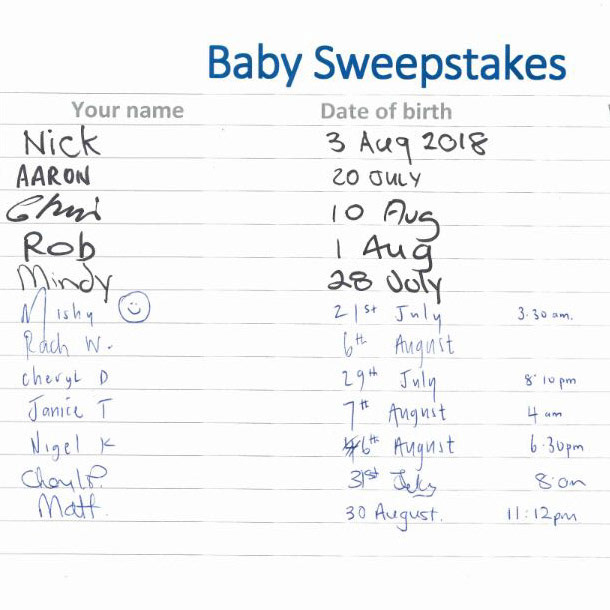 Baby Sweepstakes
Your name Date of birth
Nick 3 Aug 2018
AARON 20 JULY
Chris 10 Aug
Rob 1 Aug
Mindy 28 July
Mishy 21st July 3.30 am.
Rach W. 6th August
Cheryl D 29th July 8:10pm
Janice T 7th August 4 am
Nigel K 6th August 6.30pm
Cheryl P. 31st July
Matt. 30 August. 11:12pm